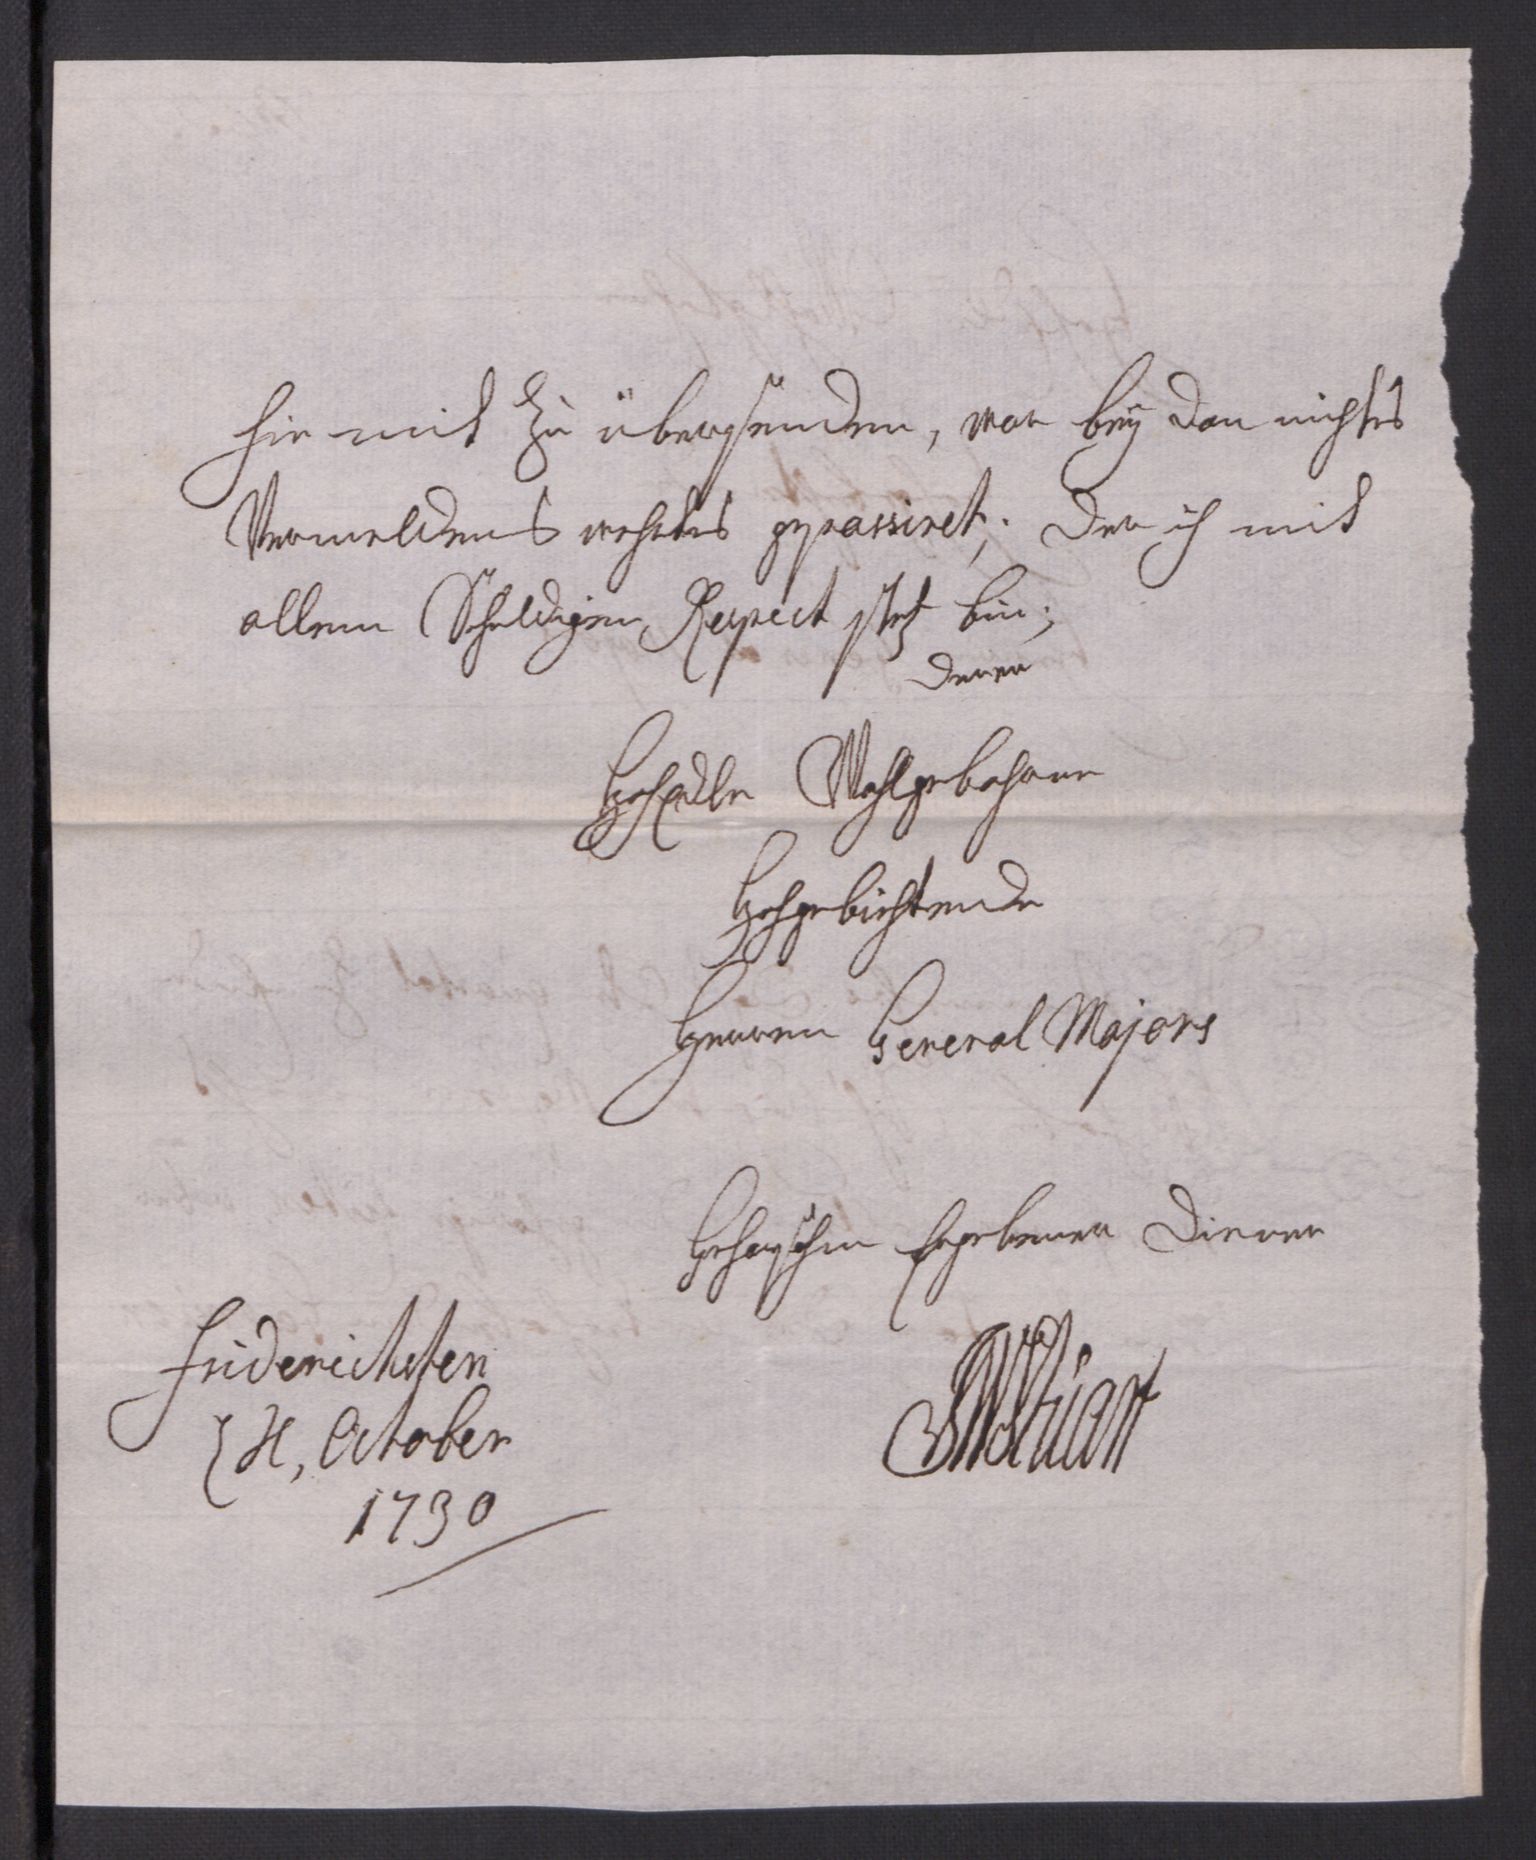 hie mit zu übersenden, wor beÿ dan nichtes
Vermeldens wehrtes gepassiret; Der ich mit
allem Schuldigen Respect stetz bin;
Deren
HohEdle Wohlgebohrne
Hochgebiehtende
Herren General Majors
Gehorsahm Ergebener Diener
Friderichsten
October
1730
Stuart